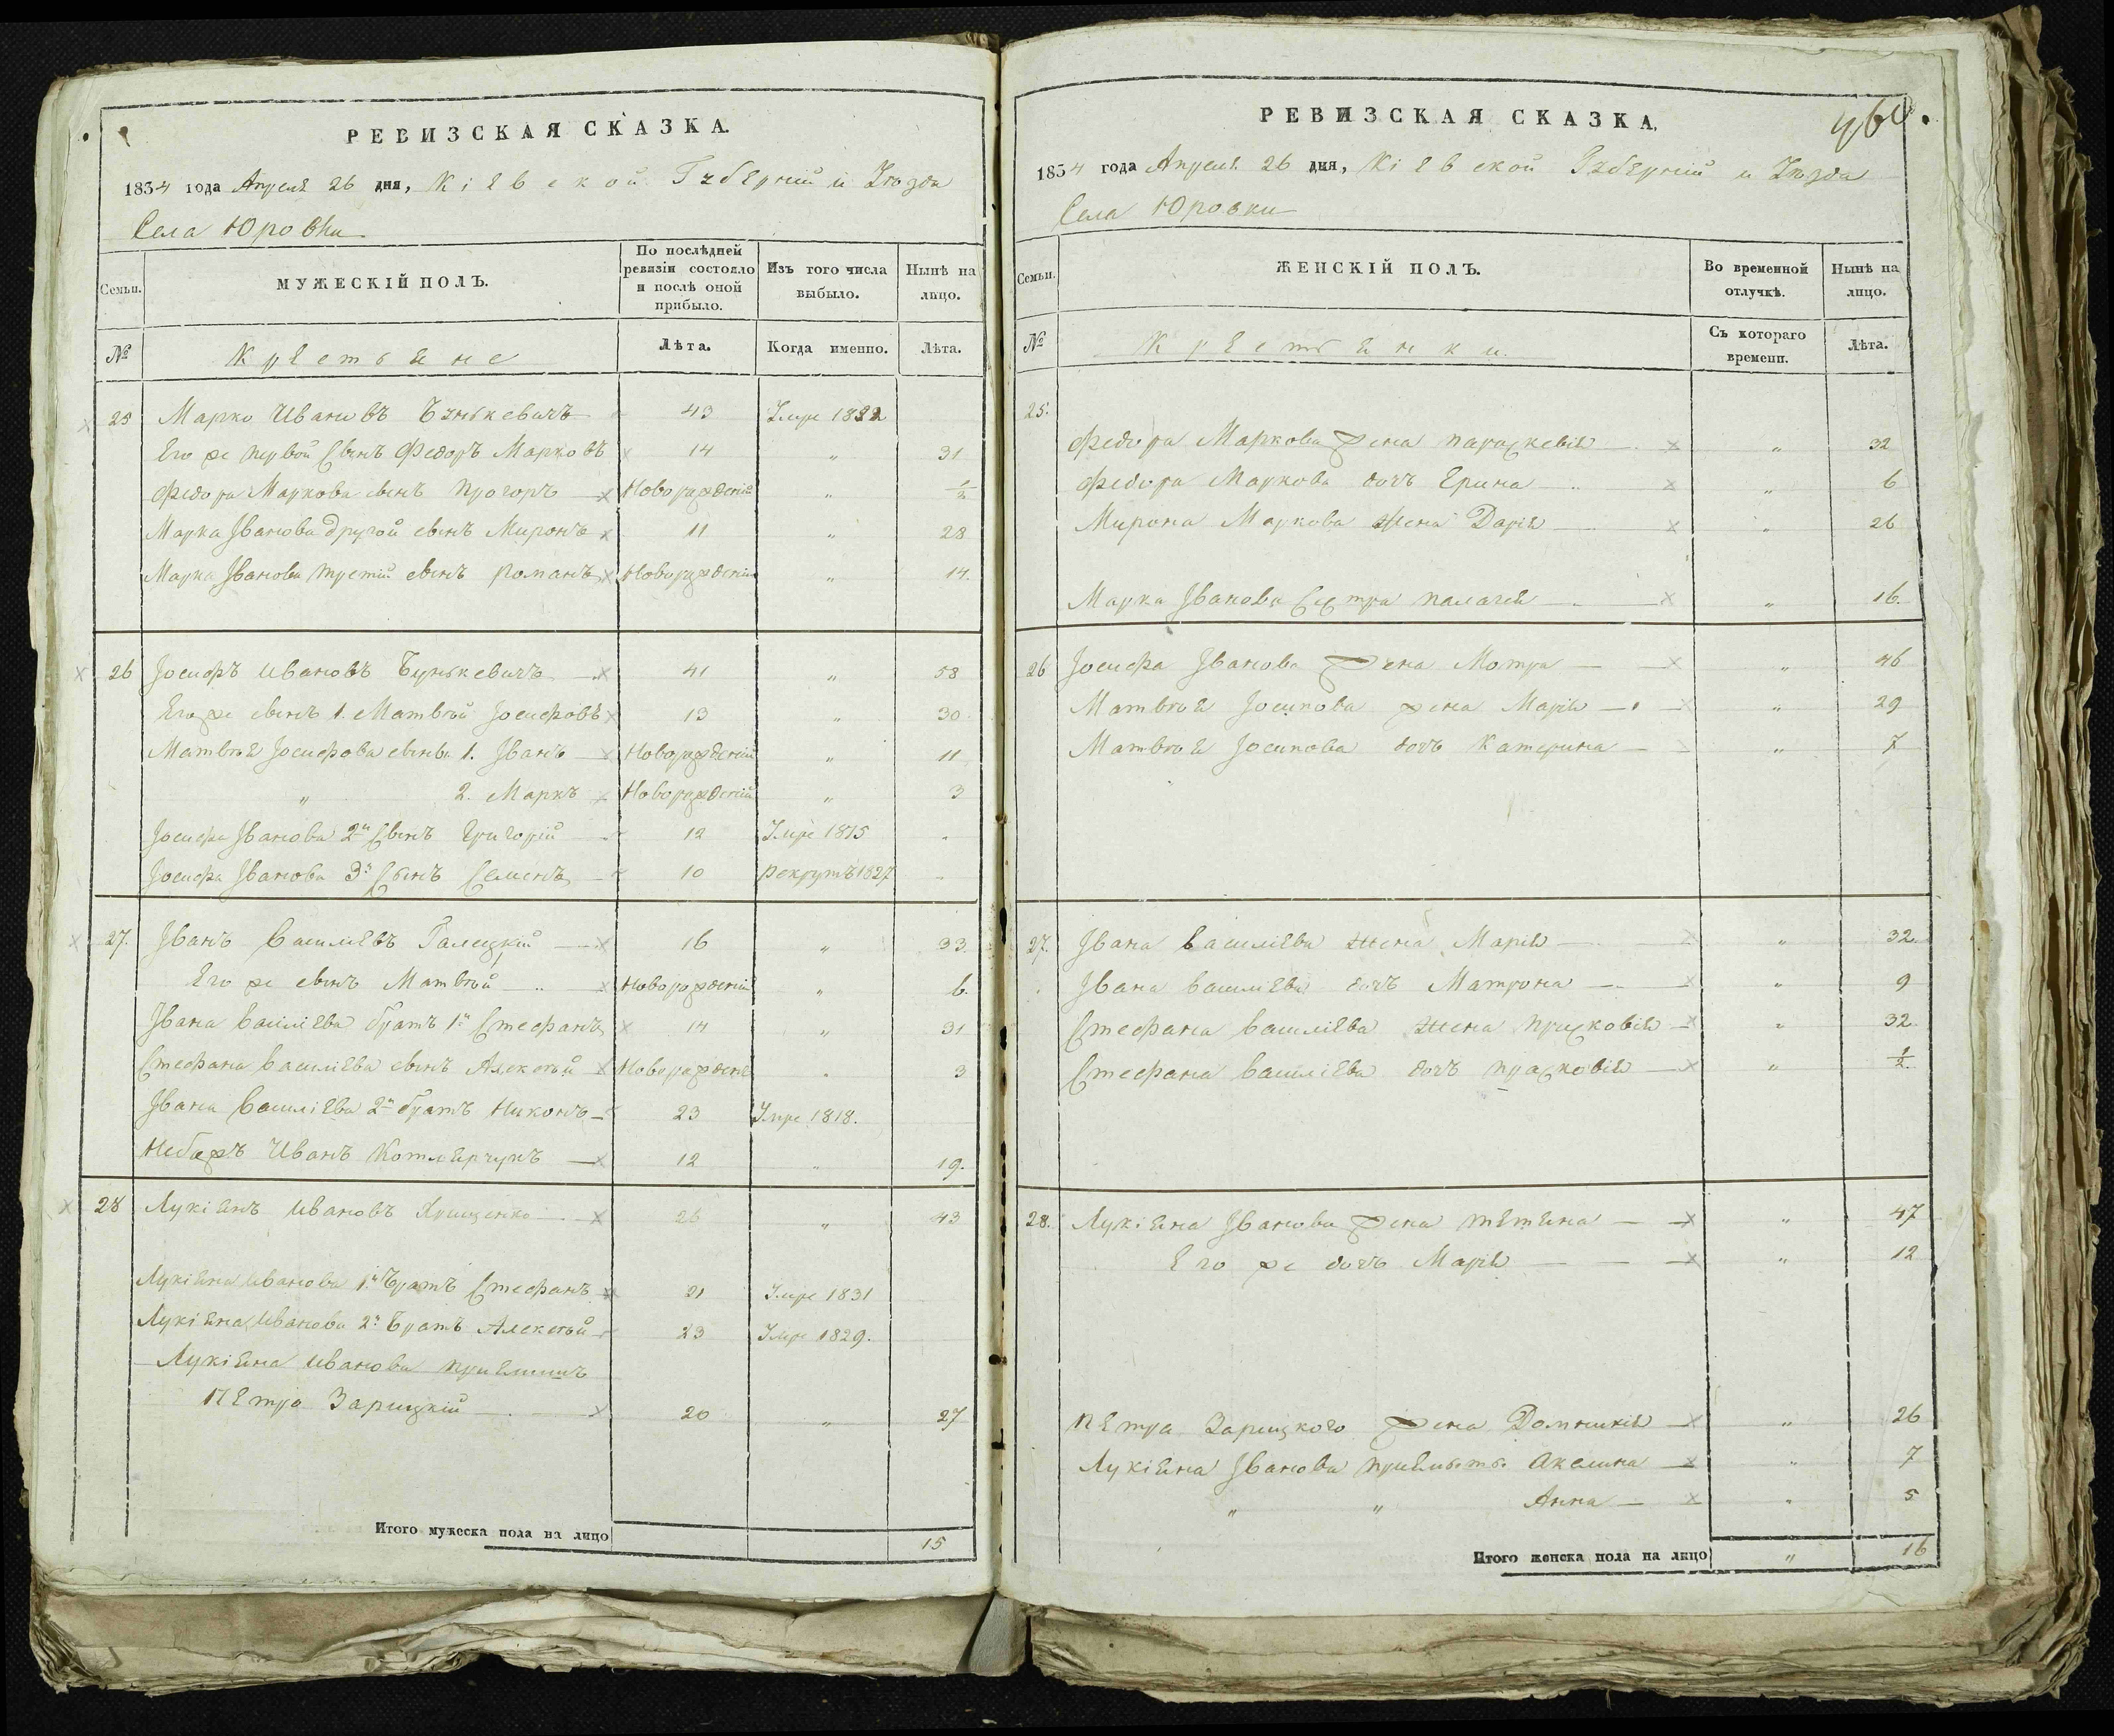 РЕВИЗСКАЯ СКАЗКА.
1834 года Апреля 26 дня, Кіевской Губерніи и Уезда
Села Юровки
Семьи.
МУЖЕСКІЙ ПОЛЪ.
По послѣдней ревизіи состояло и послѣ оной прибыло.
Изъ того числа выбыло.
Нынѣ на лицо.
№
Крестьяне
Лѣта.
Когда именно.
Лѣта.
25 Марко Ивановъ Бунькевичъ 43 Умре 1822
Его же первой Сынъ Федоръ Марковъ 14 „ 31
Федора Маркова сынъ Прохоръ Новорожденій „ 1/2
Марка Іванова другой сынъ Миронъ 11 „ 28
Марка Іванова третій сынъ Романъ Новорожденій „ 14.
26 Іосифъ Ивановъ Бунькевичъ 41 „ 58
Его же сынъ 1. Матвѣй Іосифовъ 13 „ 30
Матвѣя Іосифова сыны 1. Іванъ Новорожденій „ 11
„ 2. Маркъ Новорожденій „ 3
Іосифа Іванова 2й Сынъ Григорій 12 Умре 1815 „
Іосифа Іванова 3й Сынъ Семенъ 10 рекрутъ 1827 „
27. Іванъ Василіевъ Галецкій 16 „ 33
Его же сынъ Матвѣй Новорожденій „ 6.
Івана Василіева братъ 1й Стефанъ 14 „ 31
Стефана Василіева сынъ Алексѣй Новорожденій „ 3
Івана Василіева 2й братъ Никонъ 23 Умре 1818.
Небожъ Иванъ Котлярчукъ 12 „ 19.
28 Лукіянъ Ивановъ Хрищенко 26 „ 43
Лукіяна Иванова 1й Братъ Стефанъ 21 Умре 1831
Лукіяна Иванова 2й Братъ Алексѣй 23 Умре 1829.
Лукіяна Иванова приемишъ
Петро Зарицкій 20 „ 27
Итого мужеска пола на лицо 15
РЕВИЗСКАЯ СКАЗКА.
1834 года Апреля 26 дня, Кіевской Губерніи и Уезда
Села Юровки
Семьи.
ЖЕНСКІЙ ПОЛЪ.
Во временной отлучкѣ.
Нынѣ на лицо.
№
Крестьянки.
Съ котораго времени.
Лѣта.
25.
Федора Маркова жена Параскевія „ 32
Федора Маркова дочъ Ерина „ 6
Мирона Маркова жена Дарія „ 26
Марка Іванова Сестра Палагея „ 16.
26 Іосифа Іванова жена Мотра „ 46
Матвѣя Іосипова жена Марія „ 29
Матвѣя Іосипова дочъ Катерина „ 7
27. Івана Василіева жена Марія „ 32.
Івана Василіева дочъ Матрона „ 9
Стефана Василіева жена Прасковія „ 32
Стефана Василіева дочъ Прасковія „ 1/2.
28. Лукіяна Іванова жена Тетяна „ 47
Его же дочъ Марія „ 12
Петра Зарицкого жена Домникія „ 26
Лукіяна Іванова Акелина „ 7
„ „ Анна „ 5
Итого женска пола на лицо „ 16